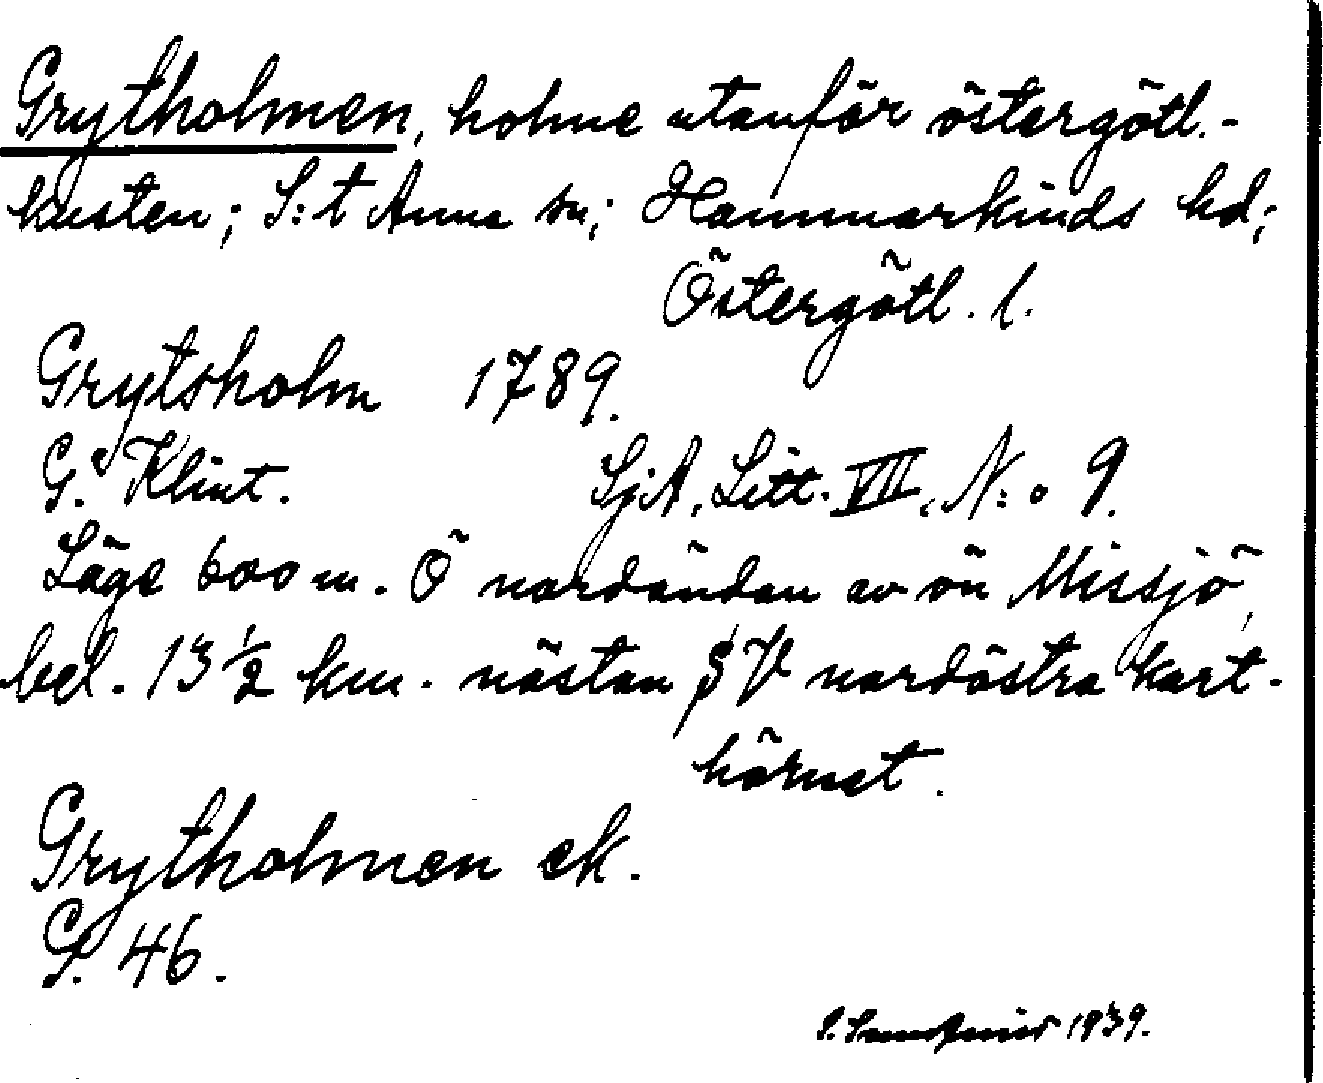 Grytholmen, holme utanför östergötl.-
kusten; S:t Anna sn; Hammarkinds hd;
Östergötl. l.
Grytsholm 1789.
G. Klint. SjA, Litt. VII, N:o 9.
Läge 600 m. Ö nordändan av ön Missjö,
bel. 13 1/2 km. nästan SV nordöstra kart-
hörnet.
Grytholmen ek.
G. 46.
1939.